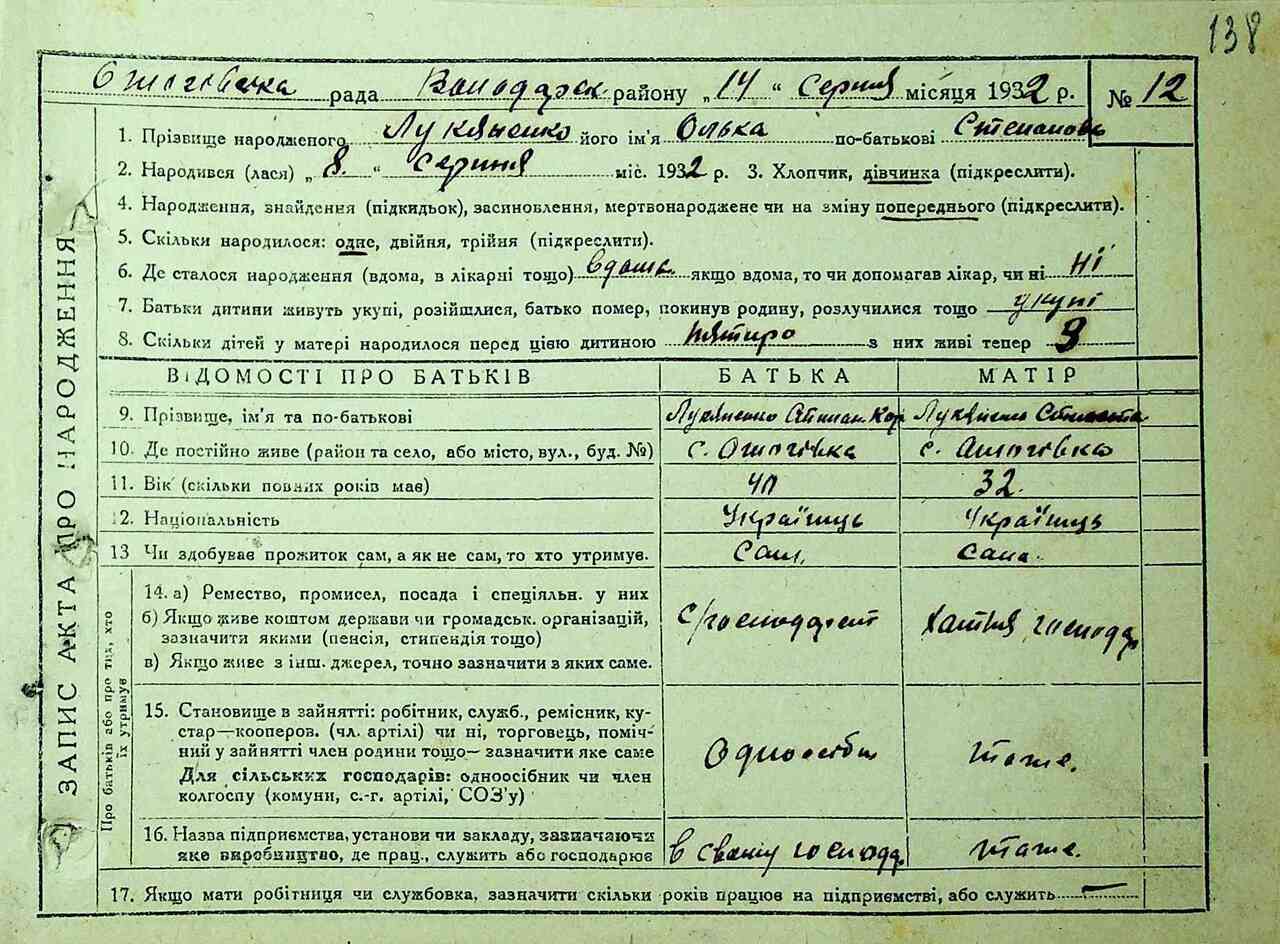 138
рада Володарск. району „14“ Серпня місяця 1932 р. № 12
1. Прізвище народженого Лукяненко його ім'я Олька по-батькові Степанов
2. Народився (лася) „8.“ Серпня міс. 1932 р. 3. Хлопчик, дівчинка (підкреслити).
4. Народження, знайдення (підкидьок), засиновлення, мертвонароджене чи на зміну попереднього (підкреслити).
5. Скільки народилося: одне, двійня, трійня (підкреслити).
6. Де сталося народження (вдома, в лікарні тощо) вдома якщо вдома, то чи допомагав лікар, чи ні ні
7. Батьки дитини живуть укупі, розійшлися, батько помер, покинув родину, розлучилися тощо укупі
8. Скільки дітей у матері народилося перед цією дитиною пятиро з них живі тепер 3
ВІДОМОСТІ ПРО БАТЬКІВ БАТЬКА МАТІР
9. Прізвище, ім'я та по-батькові Лукяненко Лукяненко
10. Де постійно живе (район та село, або місто, вул., буд. №) с. с.
11. Вік (скільки повних років має) 32.
12. Національність Українць Українць
13 Чи здобуває прожиток сам, а як не сам, то хто утримує. Сам. сама.
14. а) Ремество, промисел, посада і спеціяльн. у них
б) Якщо живе коштом держави чи громадськ. організацій, зазначити якими (пенсія, стипендія тощо) Хатня господ.
в) Якщо живе з інш. джерел, точно зазначити з яких саме.
15. Становище в зайнятті: робітник, служб., ремісник, ку-
стар—кооперов. (чл. артілі) чи ні, торговець, поміч-
ний у зайнятті член родини тощо— зазначити яке саме Одноосібн тоже.
Для сільських господарів: одноосібник чи член
колгоспу (комуни, с.-г. артілі, СОЗ'у)
16. Назва підприємства, установи чи закладу, зазначаючи
яке виробництво, де прац., служить або господарює в свому господ. тоже.
17. Якщо мати робітниця чи службовка, зазначити скільки років працює на підприємстві, або служить —
ЗАПИС АКТА ПРО НАРОДЖЕННЯ
Про батьків або про тих, хто
їх утримує